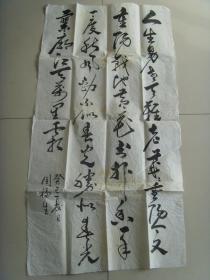 人生易老天难老岁岁重阳今又
重阳战地黄花分外香一年
一度秋风劲不似春光胜似春光
寥廓江天万里霜